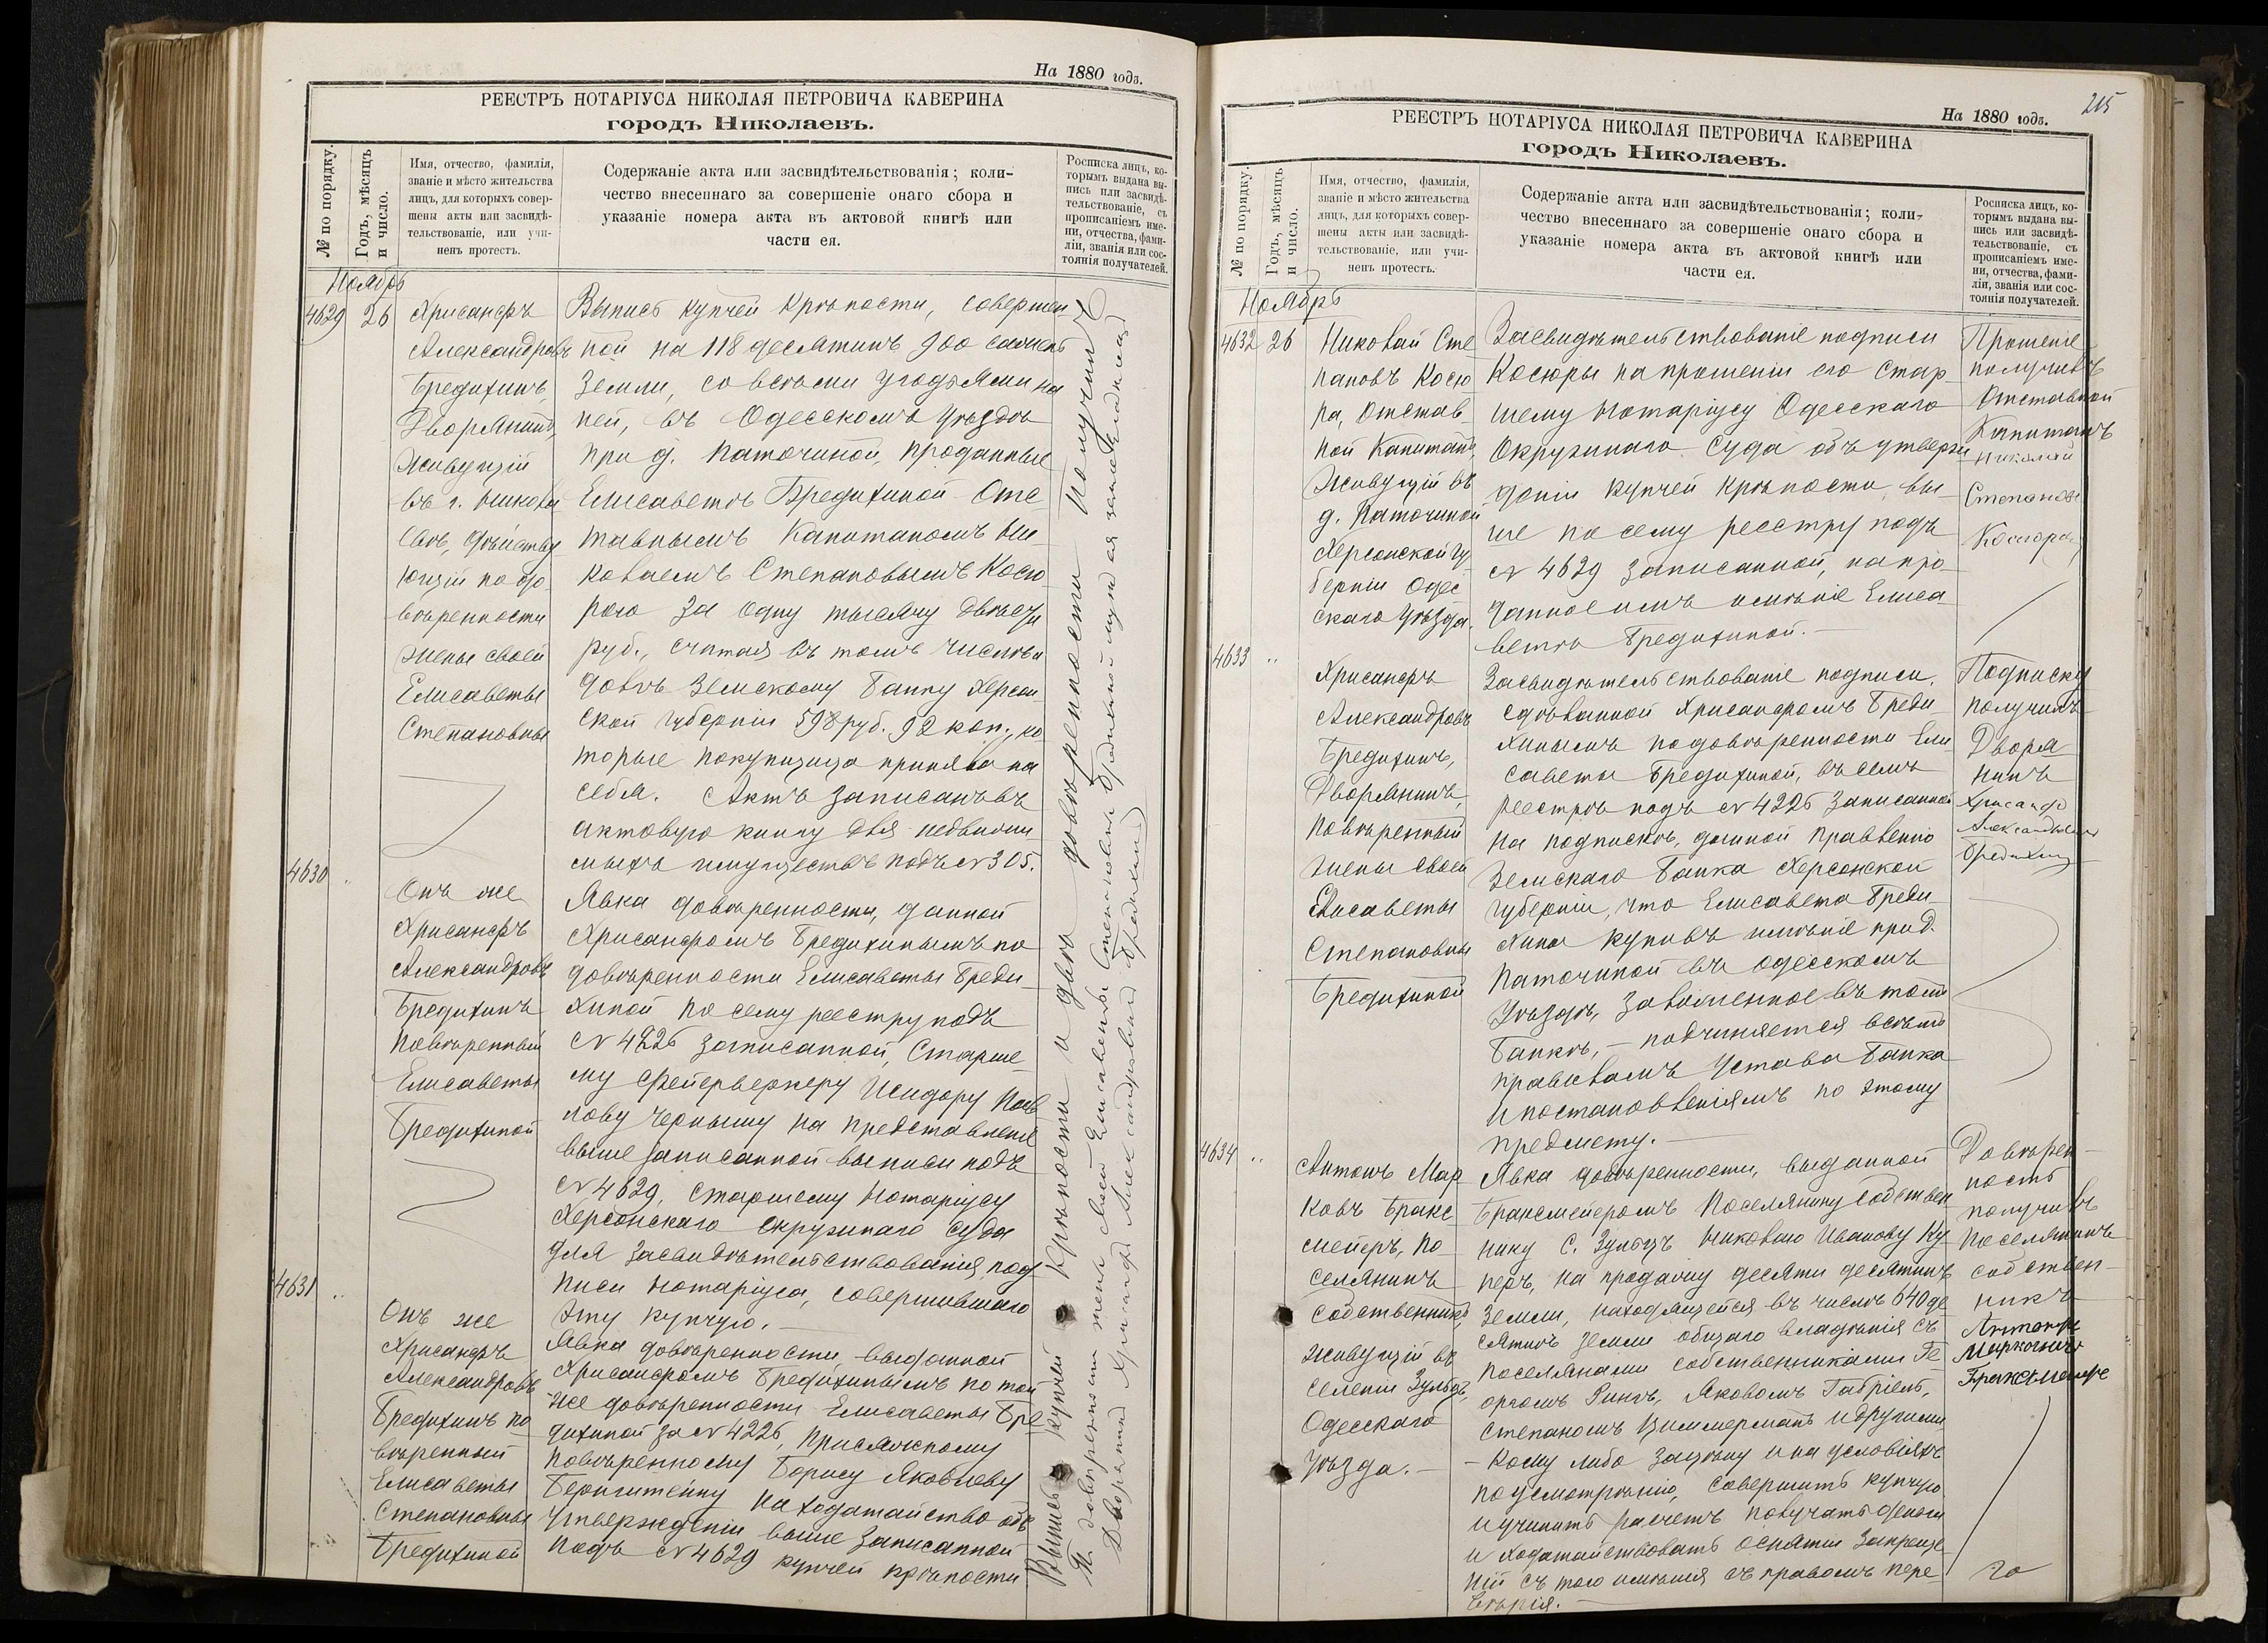 На 1880 годъ.
РЕЕСТРЪ НОТАРІУСА НИКОЛАЯ ПЕТРОВИЧА КАВЕРИНА
городъ Николаевъ.
№ по порядку.
Годъ, мѣсяцъ
и число.
Имя, отчество, фамилія,
званіе и мѣсто жительства
лицъ, для которыхъ совер-
шены акты или засвидѣ-
тельствованіе, или учи-
ненъ протестъ.
Содержаніе акта или засвидѣтельствованія; коли-
чество внесеннаго за совершеніе онаго сбора и
указаніе номера акта въ актовой книгѣ или
части ея.
Росписка лицъ, ко-
торымъ выдана вы-
пись или засвидѣ-
тельствованіе, съ
прописаніемъ име-
ни, отчества, фами-
ліи, званія или сос-
тоянія получателей.
Ноябрь
4629
26
Хрисанфъ
Александровъ
Бредихинъ,
Дворянинъ,
Живущій
въ г. Никола
евѣ, дѣйству
ющій по до
вѣренности
жены своей
Елисаветы
Степановны
Выпись купчей крѣпости, совершен
ной на 118 десятинъ 900 сажень
земли, со всѣми угодьями на
ней, въ Одесскомъ уѣздѣ
при д. Каточиной, проданные
Елисаветѣ Бредихиной Отс
тавнымъ Капитаномъ Ни
колаемъ Степановымъ Косю
рою за одну тысячу двѣсти
руб., считая въ томъ числѣ и
долгъ Земскому Банку Херсон
ской губерніи 598 руб. 92 коп., ко
торые покупщица приняла на
себя. Актъ записанъ въ
актовую книгу для недвижи
мыхъ имуществъ подъ № 305.
4630
Онъ же
Хрисанфъ
Александровъ
Бредихинъ
повѣренный
Елисаветы
Бредихиной
Явка довѣренности, данной
Хрисанфомъ Бредихинымъ по
довѣренности Елисаветы Бреди
хиной по сему реестру подъ
№ 4226 записанной, Старше
му фейерверкеру Исидору Пав
лову Чернышу на представленіе
выше записанной выписи подъ
№ 4629, Старшему Нотаріусу
Херсонскаго окружнаго суда
для засвидѣтельствованія под
писи нотаріуса, совершившаго
эту купчую.
4631
Онъ же
Хрисанфъ
Александровъ
Бредихинъ по
вѣренный
Елисаветы
Степановны
Бредихиной
Явка довѣренности, выданной
Хрисанфомъ Бредихинымъ по той
же довѣренности Елисаветы Бре
дихиной за № 4226, присяжному
повѣренному Борису Яковлеву
Бернштейну на ходатайство объ
утвержденіи выше записанной
подъ № 4629 купчей крѣпости
Выпись купчей крѣпости и двѣ довѣренности получилъ
По довѣренности жены моей Елисаветы Степановны Бредихиной
Дворянинъ Хрисанфъ Александровичъ Бредихинъ
На 1880 годъ.
215
РЕЕСТРЪ НОТАРІУСА НИКОЛАЯ ПЕТРОВИЧА КАВЕРИНА
городъ Николаевъ.
№ по порядку.
Годъ, мѣсяцъ
и число.
Имя, отчество, фамилія,
званіе и мѣсто жительства
лицъ, для которыхъ совер-
шены акты или засвидѣ-
тельствованіе, или учи-
ненъ протестъ.
Содержаніе акта или засвидѣтельствованія; коли-
чество внесеннаго за совершеніе онаго сбора и
указаніе номера акта въ актовой книгѣ или
части ея.
Росписка лицъ, ко-
торымъ выдана вы-
пись или засвидѣ-
тельствованіе, съ
прописаніемъ име-
ни, отчества, фами-
ліи, званія или сос-
тоянія получателей.
Ноябрь
4632
26
Николай Сте
пановъ Косю
ра, Отстав
ной Капитанъ,
Живущій въ
д. Каточиной
Херсонской гу
берніи Одес
скаго уѣзда.
Засвидѣтельствованіе подписи
Косюры на прошеніи его Стар
шему Нотаріусу Одесскаго
Окружнаго Суда объ утверж
деніи купчей крѣпости, вы
ше по сему реестру подъ
№ 4629 записанной, на про
данное имъ имѣніе Елиса
ветѣ Бредихиной.
Прошеніе
получилъ
Отставной
Капитанъ
Николай
Степановъ
Косюра
4633
Хрисанфъ
Александровъ
Бредихинъ,
Дворянинъ,
повѣренный
жены своей
Елисаветы
Степановны
Бредихиной
Засвидѣтельствованіе подписи,
сдѣланной Хрисанфомъ Бреди
хинымъ по довѣренности Ели
саветы Бредихиной, въ семъ
реестрѣ подъ № 4226 записанной
на подпискѣ, данной Правленію
Земскаго Банка Херсонской
губерніи, что Елисавета Бреди
хина купивъ имѣніе при д.
Каточиной въ Одесскомъ
уѣздѣ, заложенное въ томъ
Банкѣ, – подчиняется всѣмъ
правиламъ Устава Банка
и постановленіямъ по этому
предмету.
Подписку
получилъ
Дворя
нинъ
Хрисанфъ
Александровичъ
Бредихинъ
4634
Антонъ Мар
ковъ Бракс
мейеръ, По
селянинъ
собственникъ,
живущій въ
селеніи Зульцъ,
Одесскаго
уѣзда.
Явка довѣренности, выданной
Браксмейеромъ Поселянину собствен
нику С. Зульцъ Николаю Иванову Ку
перъ, на продажу десяти десятинъ
земли, находящейся въ числѣ 640 де
сятинъ земли общаго владѣнія съ
поселянами собственниками Ге
оргомъ Ринкъ, Яковомъ Габріель,
Степаномъ Циммерманъ и другими
кому либо за цѣну и на условіяхъ
по усмотрѣнію, совершить купчую
и учинить расчетъ получать деньги
и ходатайствовать о снятіи запреще
ній съ того имѣнія съ правомъ пере
вѣрія.
Довѣрен
ность
получилъ
поселянинъ
собствен
никъ
Антонъ
Марковичъ
Браксмейеръ